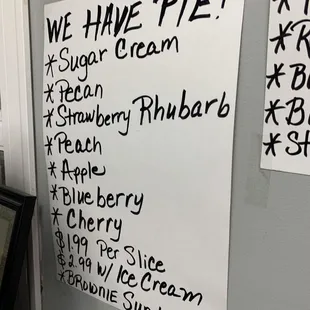 WE HAVE PIE!
*Sugar Cream
*Pecan
*Strawberry Rhubarb
*Peach
*Apple
*Blueberry
*Cherry
$1.99 Per Slice
$2.99 W/ Ice Cream
*BROWNIE